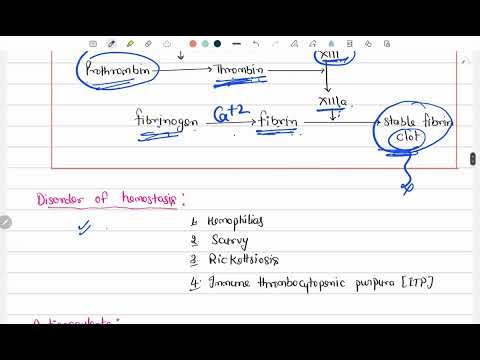 XIII
Prothrombin Thrombin
XIIIa
fibrinogen Ca+2 fibrin stable fibrin
clot
Disorder of hemostasis :
1. Hemophilias
2 Scurvy
3 Rickettsiosis
4. Immune thrombocytopenic purpura [ITP]
Anticoagulants :